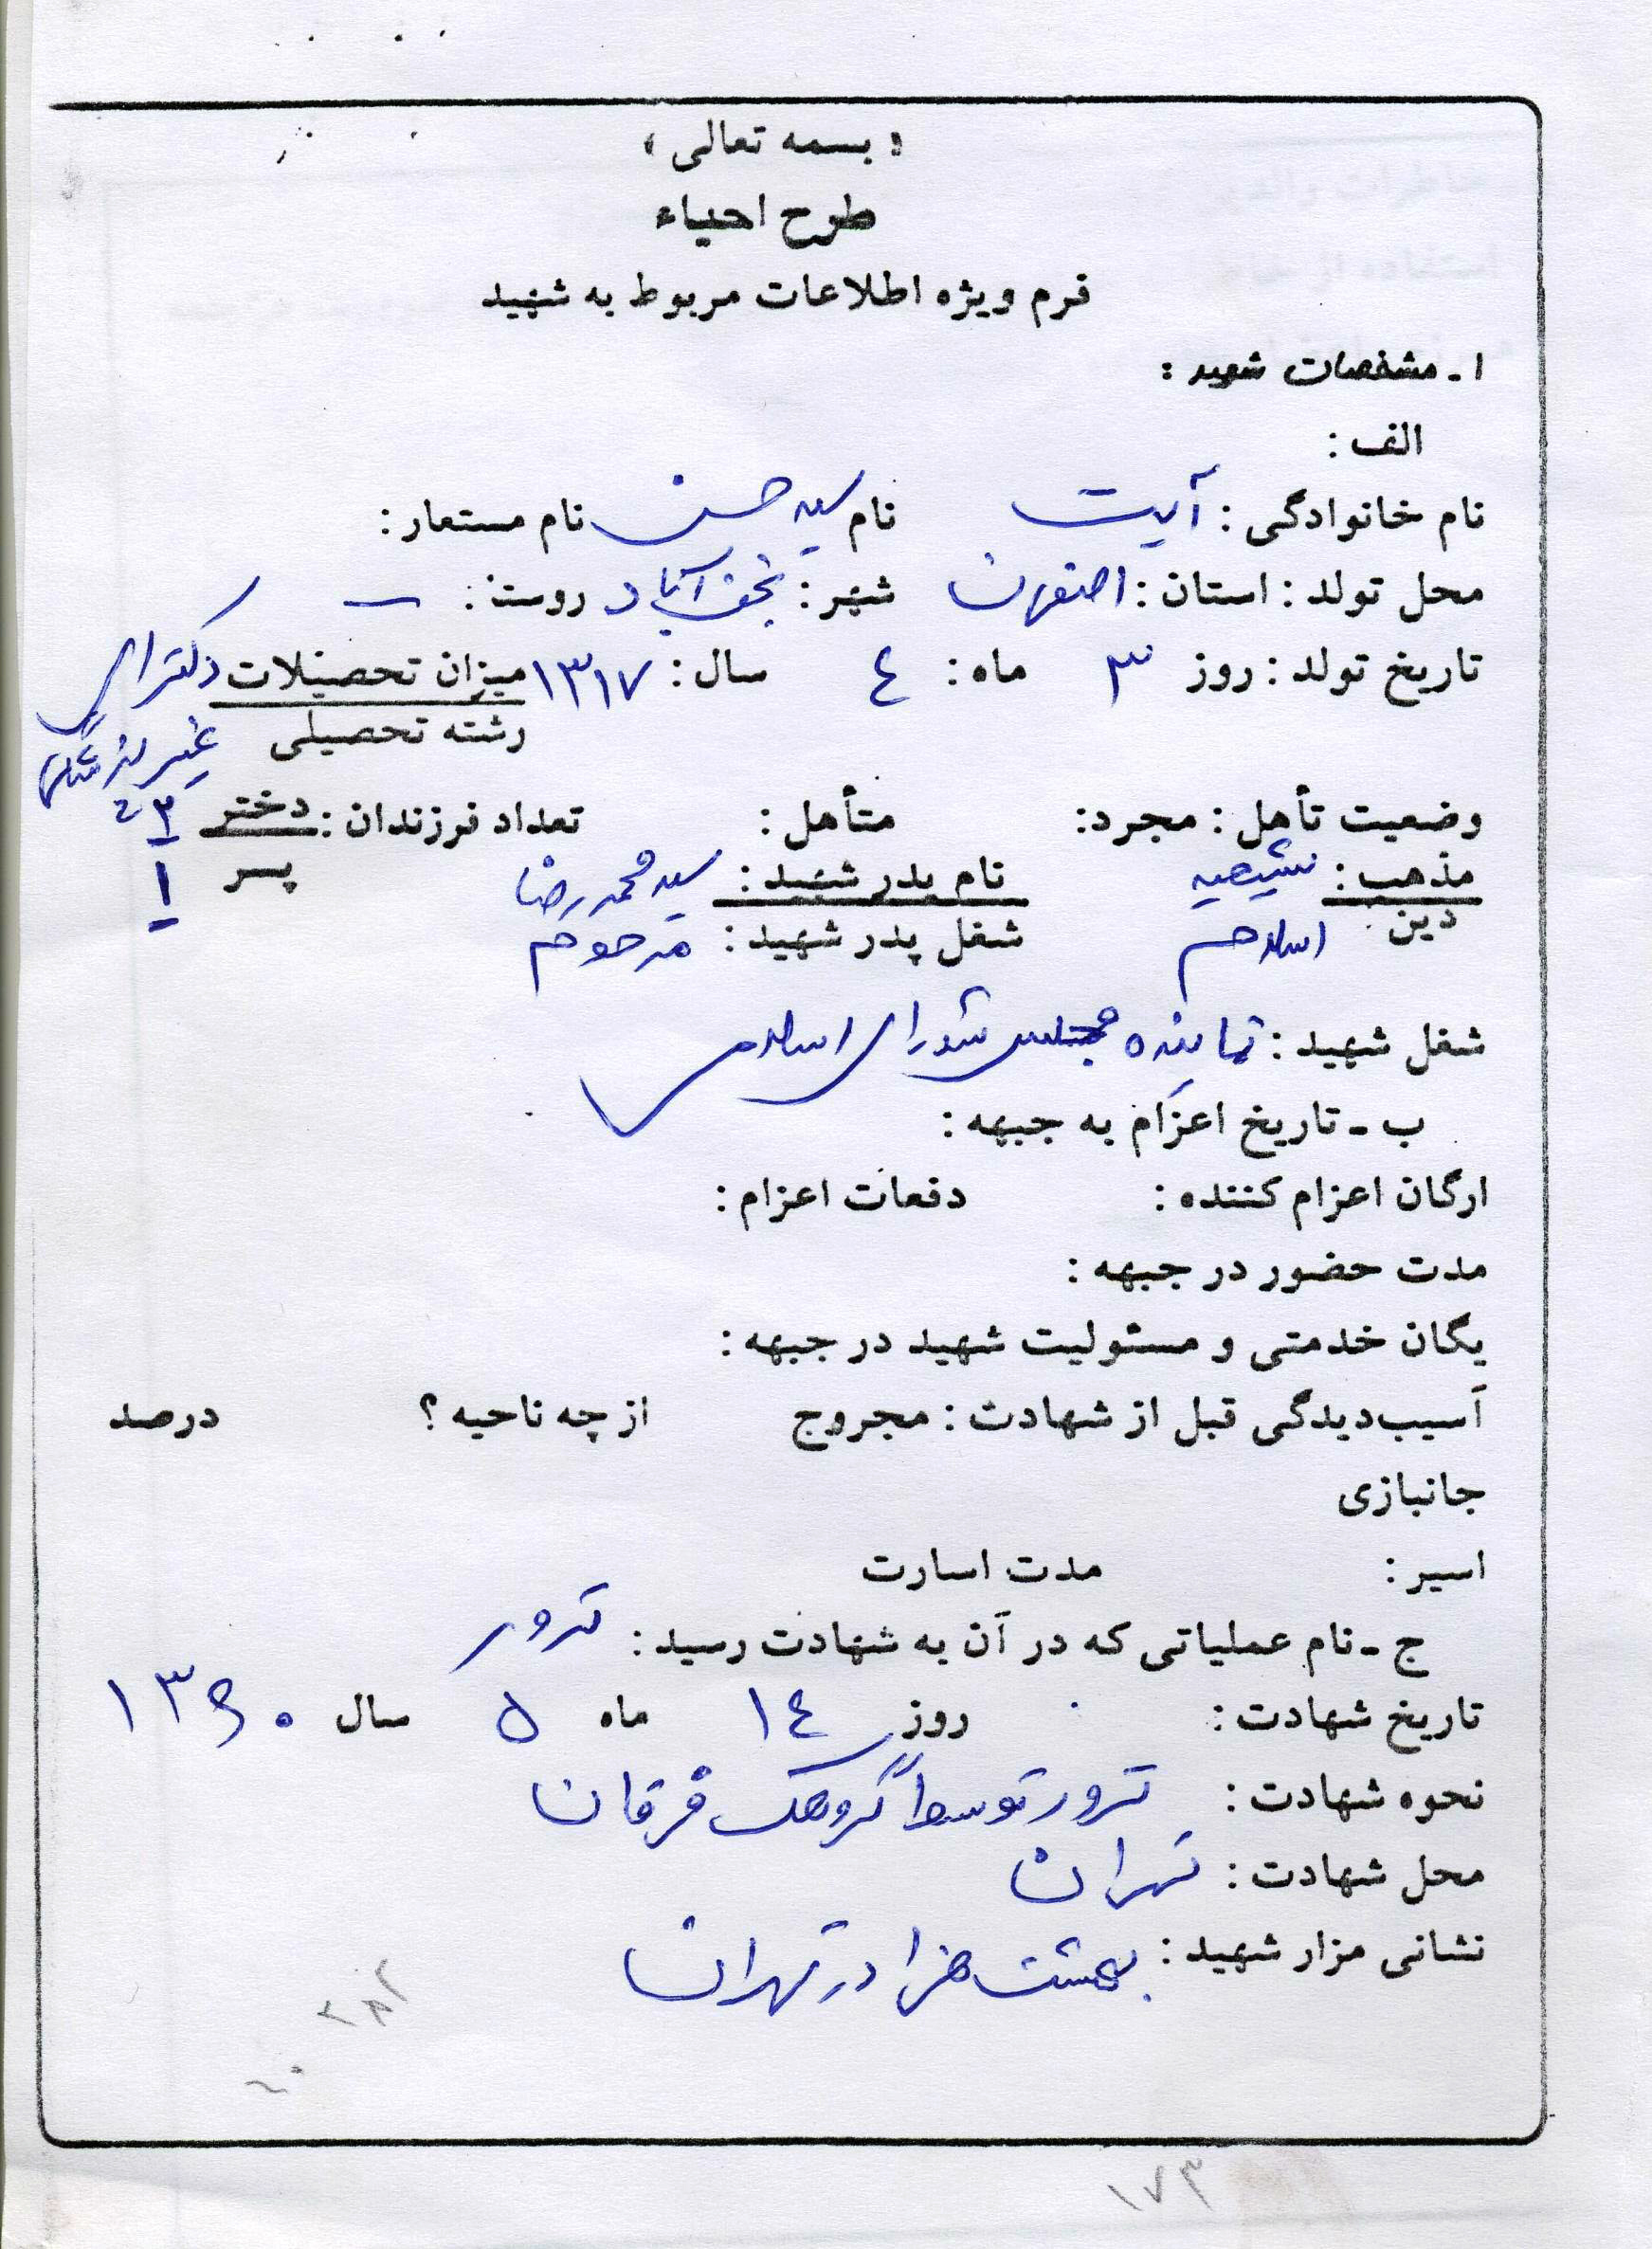 « بسمه تعالی »
طرح احیاء
فرم ویژه اطلاعات مربوط به شهید
۱ - مشخصات شهید :
الف :
نام خانوادگی : آیت نام سید حسن نام مستعار :
محل تولد : استان : اصفهان شهر : نجف آباد روستا : —
تاریخ تولد : روز ۳ ماه : ٤ سال : ۱۳۱۷ میزان تحصیلات دکترای
رشته تحصیلی غیر پزشکی
وضعیت تأهل : مجرد : متأهل : تعداد فرزندان : دختر ۳
مذهب : شیعه نام پدر شهید : سید محمد رضا پسر ۱
دین : اسلام شغل پدر شهید : مرحوم
شغل شهید : نماینده مجلس شورای اسلامی
ب - تاریخ اعزام به جبهه :
ارگان اعزام کننده : دفعات اعزام :
مدت حضور در جبهه :
یگان خدمتی و مسئولیت شهید در جبهه :
آسیب‌دیدگی قبل از شهادت : مجروح از چه ناحیه ؟ درصد
جانبازی
اسیر : مدت اسارت
ج - نام عملیاتی که در آن به شهادت رسید : ترور
تاریخ شهادت : روز ۱٤ ماه ۵ سال ۱۳۶۰
نحوه شهادت : ترور توسط گروهک فرقان
محل شهادت : تهران
نشانی مزار شهید : بهشت هزا در تهران
۱۷۳